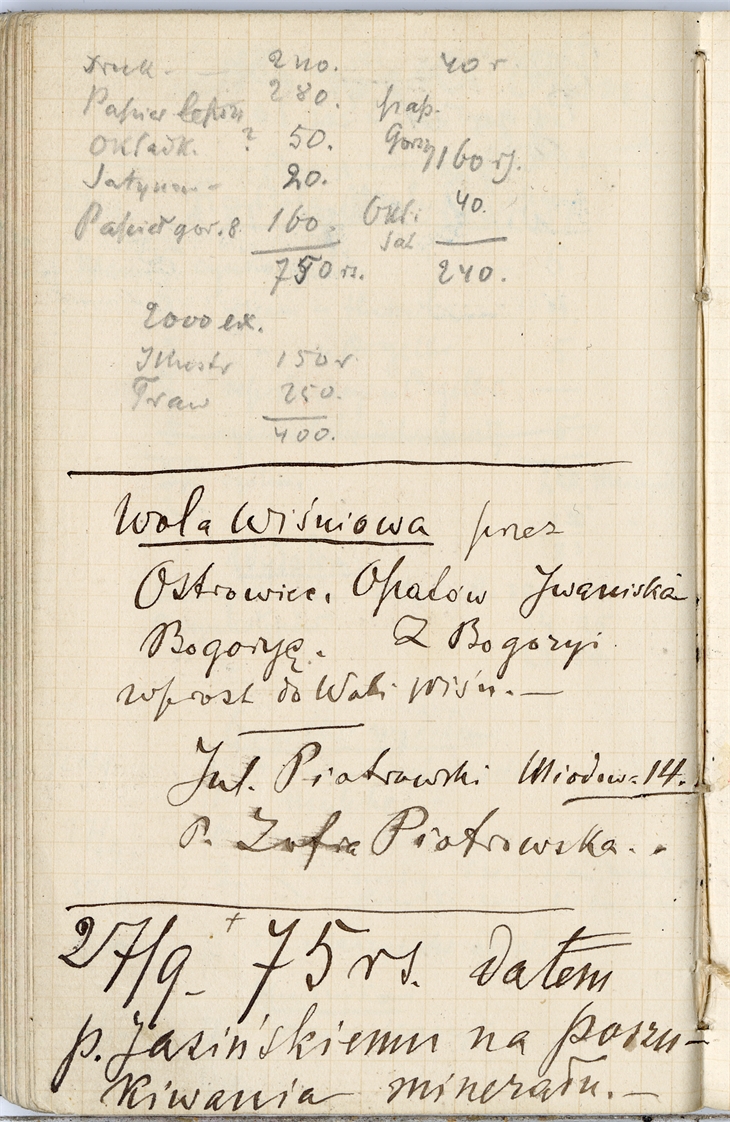 Druk — 240. 40 r
Papier 280. pap.
Okładk. ? 50. Gorszy 160 rs.
Satynow- 20.
Papier gor. 8 160. Okł: 40.
sat
750 rs. 240.
2000 ex.
Illustr 150 r
250.
400.
Wola Wiśniowa przez
Ostrowiec. Opatów Iwaniska
Bogoryę. Z Bogoryi
wprost do Woli Wiśn. —
Jul. Piotrowski Miodow- 14.
P. Zofia Piotrowska.
27/9 - + 75 rs. dałem
p. Jasińskiemu na poszu-
kiwania minerału. —